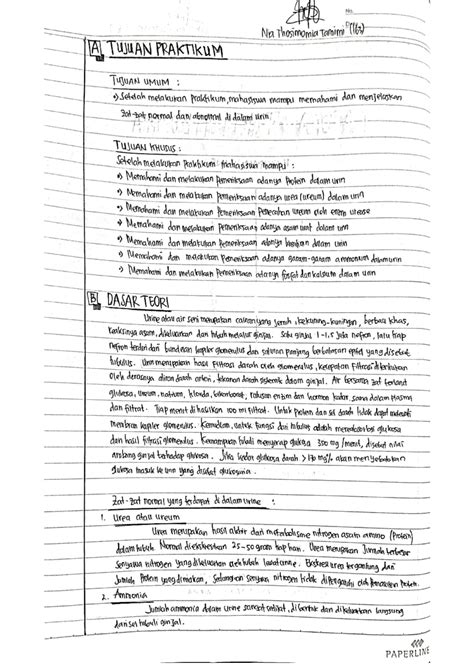 No.
Nia Thosimomia Tamimi (162)
A TUJUAN PRAKTIKUM
TUJUAN UMUM :
→ Setelah melakukan praktikum, mahasiswa mampu memahami dan menjelaskan
zat-zat normal dan abnormal di dalam urin
TUJUAN KHUSUS :
Setelah melakukan praktikum mahasiswa mampu :
→ Memahami dan melakukan pemeriksaan adanya protein dalam urin
→ Memahami dan melakukan pemeriksaan adanya urea (ureum) dalam urin
→ Memahami dan melakukan pemeriksaan pemecahan ureum oleh enzim urease
→ Memahami dan melakukan pemeriksaan adanya asam urat dalam urin
→ Memahami dan melakukan pemeriksaan adanya kreatinin dalam urin
→ Memahami dan melakukan pemeriksaan adanya garam-garam ammonium dalam urin
→ Memahami dan melakukan pemeriksaan adanya fosfat dan kalsium dalam urin
B DASAR TEORI
Urine atau air seni merupakan cairan yang jernih, kekuning-kuningan, berbau khas,
reaksinya asam, dikeluarkan dari tubuh melalui ginjal. Satu ginjal 1-1,5 juta nefron, lalu tiap
nefron terdiri dari bundaran kapiler glomerulus dan saluran panjang berbatasan epitel yang disebut
tubulus. Urin merupakan hasil filtrasi darah oleh glomerulus, kecepatan filtrasi ditentukan
oleh derasnya aliran darah arteri, tekanan darah sistemik dalam ginjal. Air bersama zat terlarut
glukosa, ureum, natrium, klorida, bikarbonat, ratusan enzim dan hormon kadar sama dalam plasma
dan filtrat. Tiap menit dihasilkan 100 ml filtrat. Untuk protein dan sel darah tidak dapat melewati
membran kapiler glomerulus. Kemudian, untuk fungsi dari tubulus adalah mereabsorbsi glukosa
dari hasil filtrasi glomerulus. Kemampuan tubuli menyerap glukosa 300 mg/menit, disebut nilai
ambang ginjal terhadap glukosa. Jika kadar glukosa darah > 170 mg% akan menyebabkan
glukosa masuk ke urin yang disebut glukosuria.
Zat-zat normal yang terdapat di dalam urine :
1. Urea atau ureum
Urea merupakan hasil akhir dari metabolisme nitrogen asam amino (protein)
dalam tubuh. Normal diekskresikan 25-50 gram tiap hari. Urea merupakan jumlah terbesar
senyawa nitrogen yang dikeluarkan oleh tubuh
jumlah protein yang dimakan, sedangkan senyawa nitrogen tidak dipengaruhi oleh pemecahan protein.
2. Ammonia
Jumlah ammonia dalam urine sangat sedikit, dibentuk dan dikeluarkan langsung
dari sel tubuli ginjal.
PAPERLINE